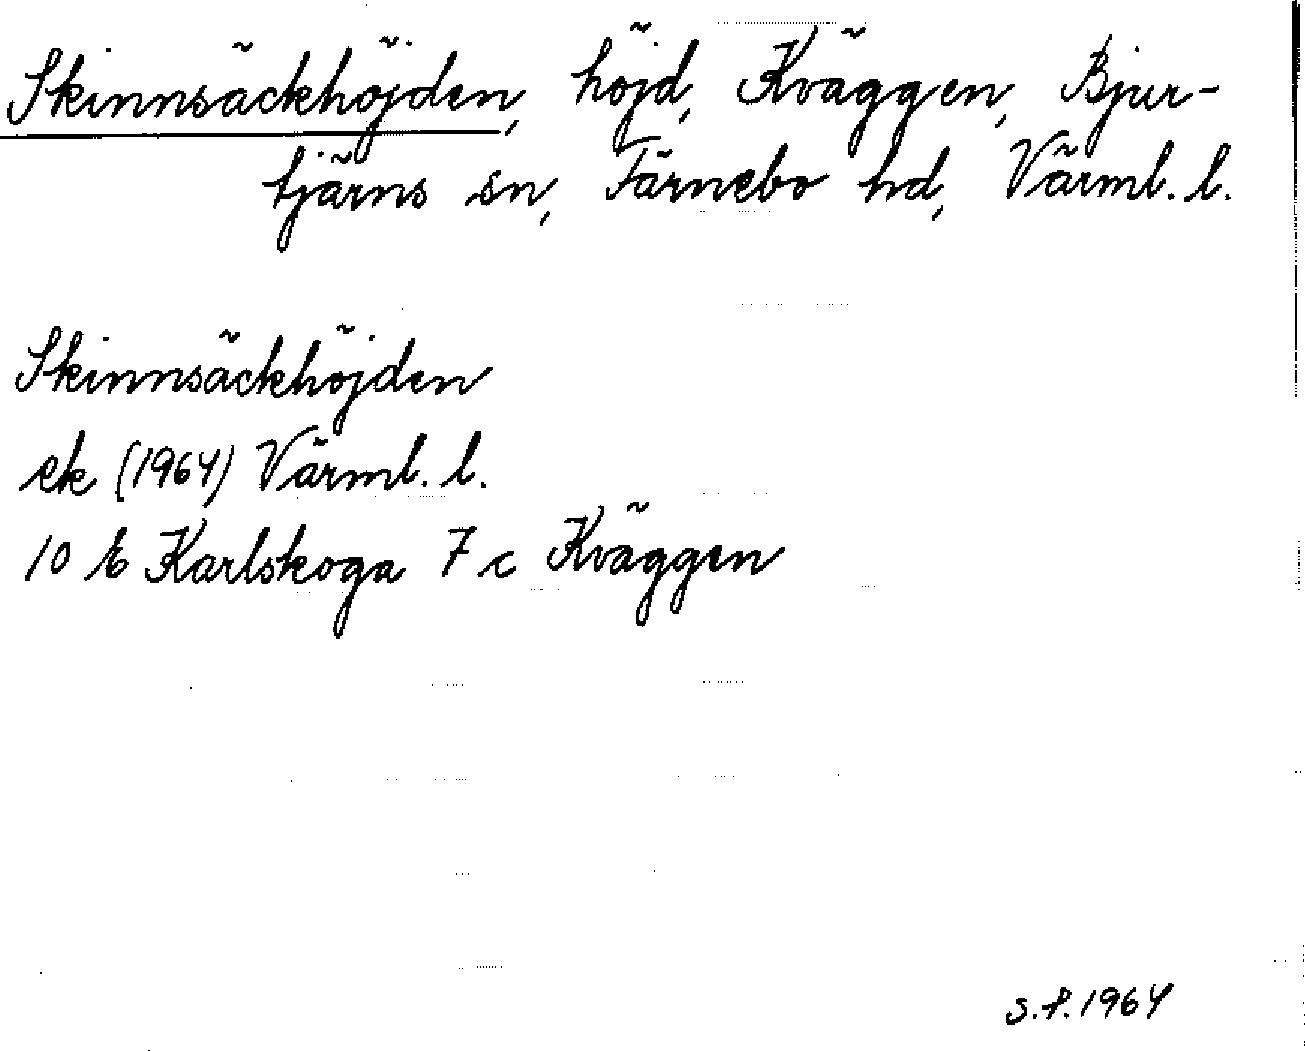 Skinnsäckhöjden, höjd, Kväggen, Bjur-
tjärns sn, Färnebo hd, Värml. l.
Skinnsäckhöjden
ek (1964) Värml. l.
10 E Karlskoga 7 c Kväggen
s.f. 1964